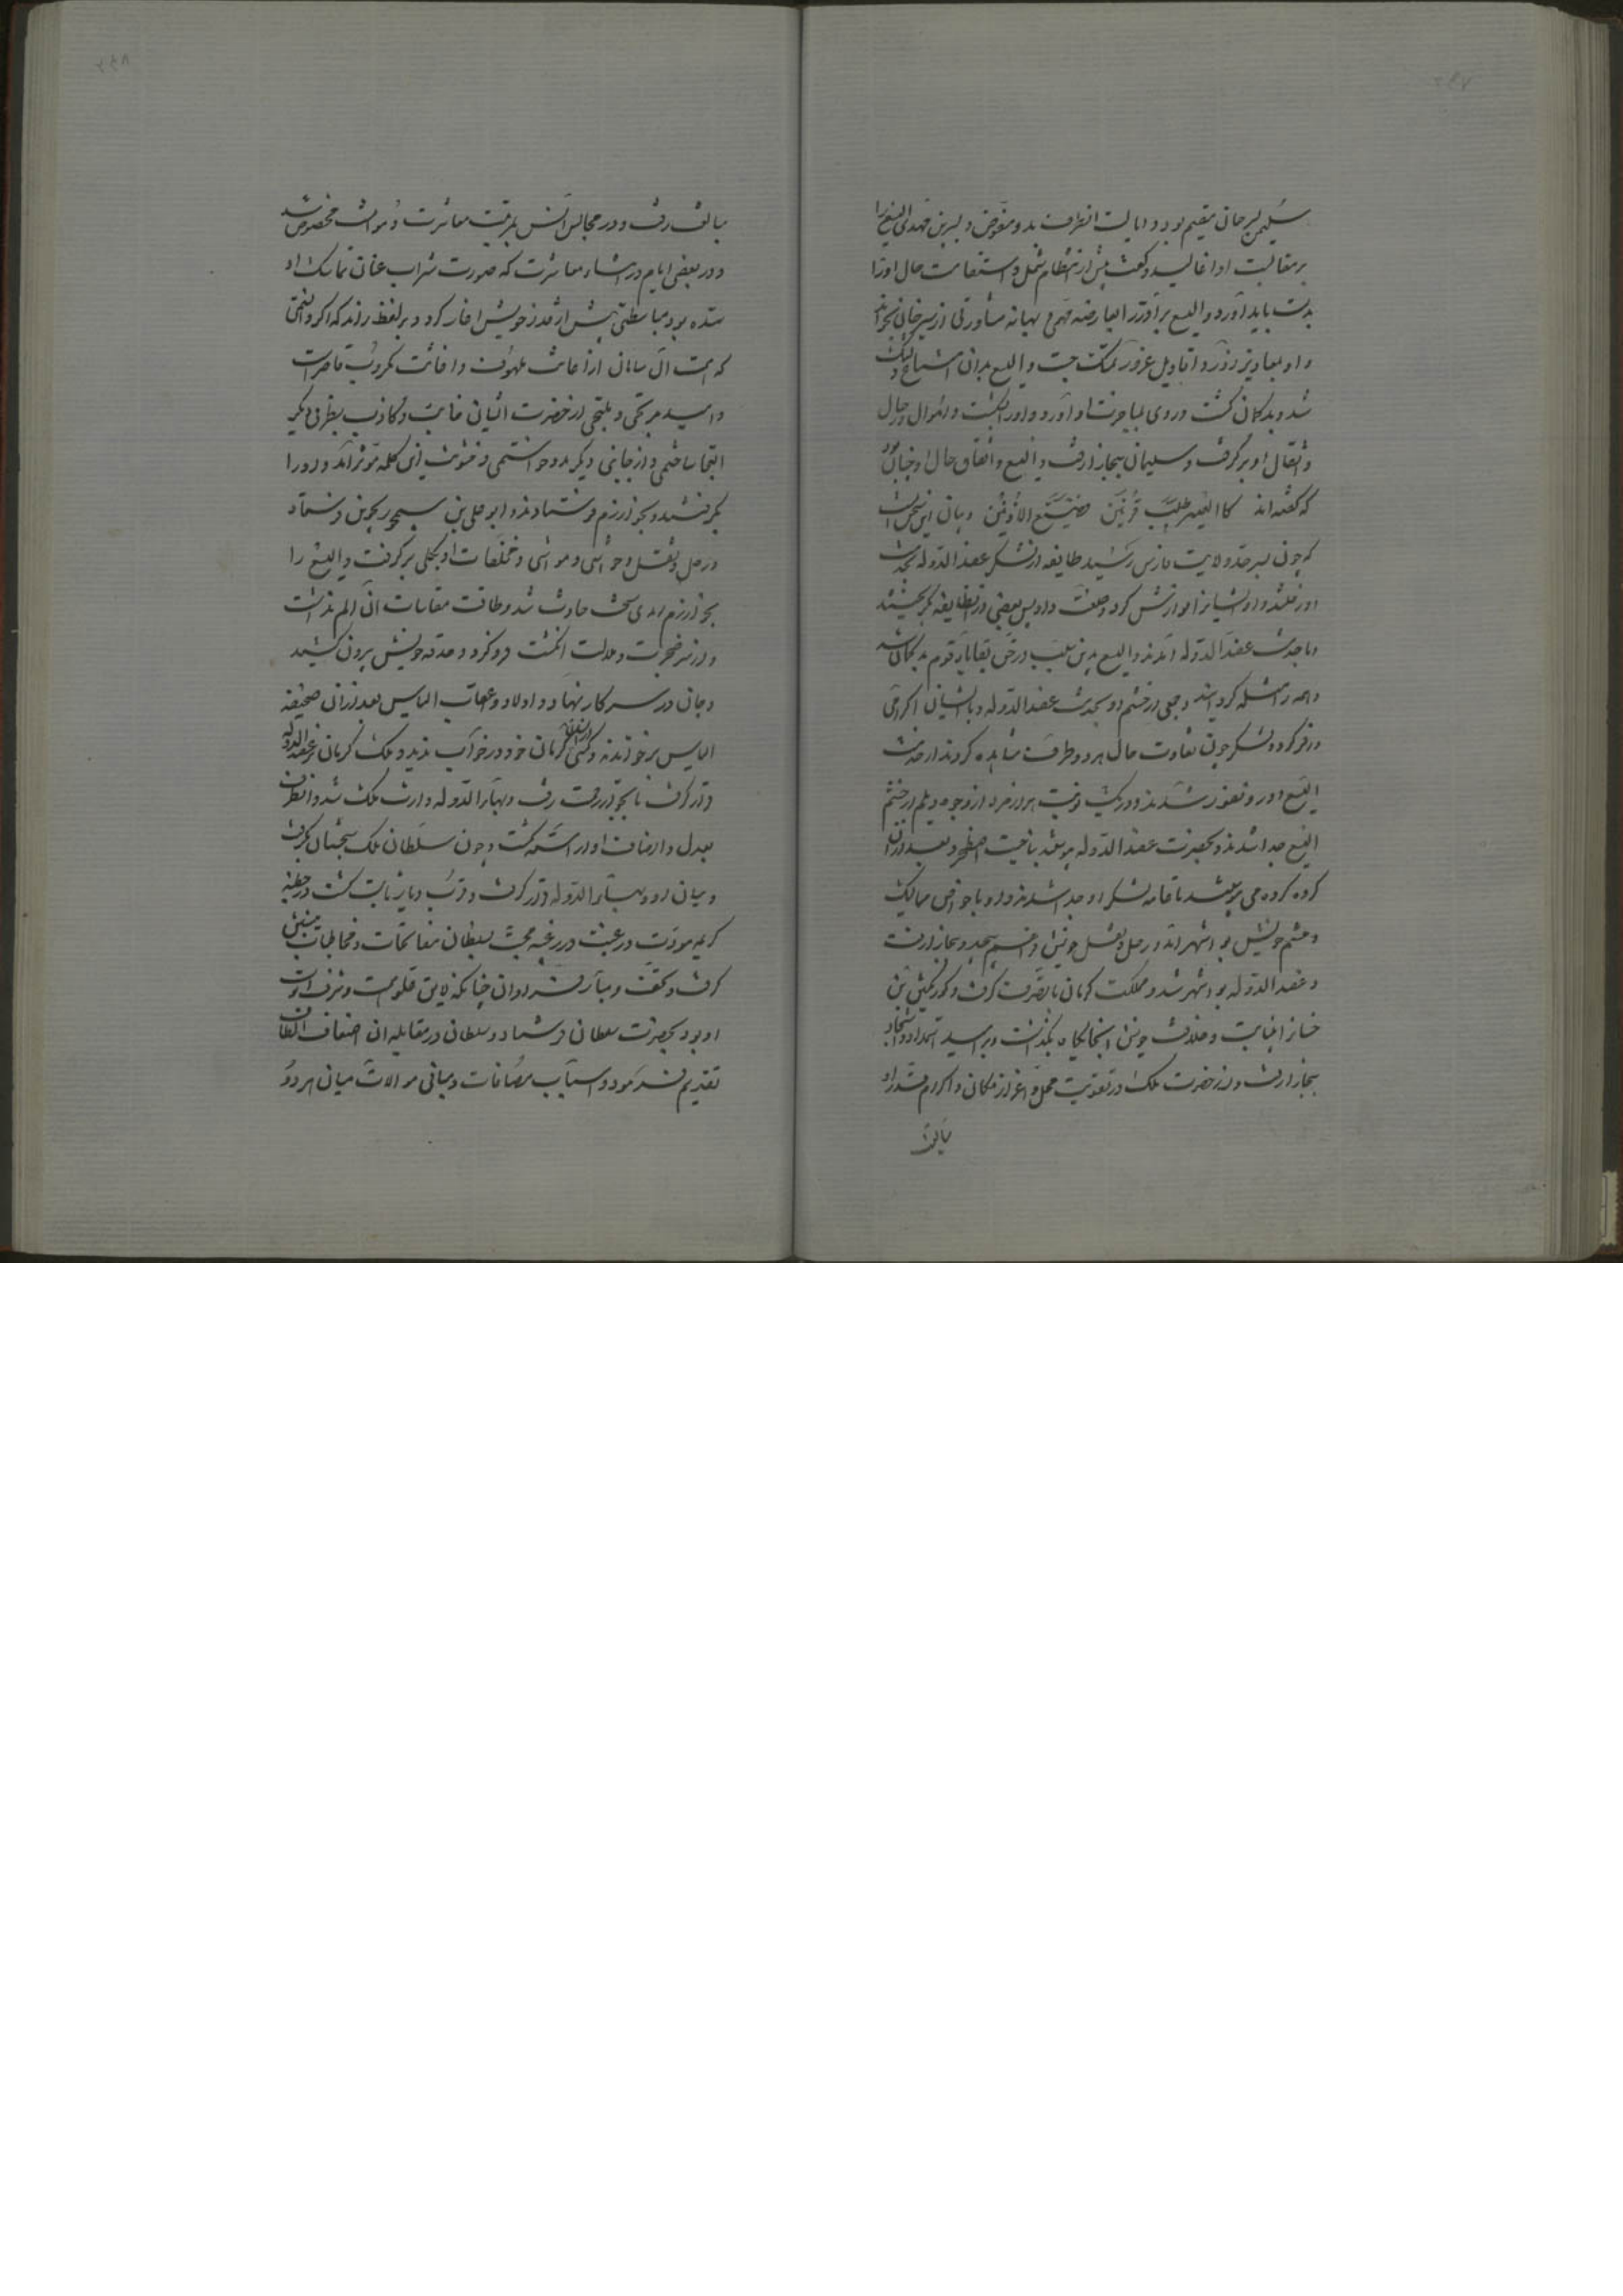 سلیمن بسیرجان مقیم بود و ایالت انطرف بدو مفوض و بشر بن مهدی الیسع را
بر مغالبت او اغالید و گفت پیش از انتظام شمل و استقامت حال او را
بدست باید آورد و الیسع برادر را بعارضه مهمی و بهانه مشاورتی از سیرجان بخواند
و او بمعاذیر زور و اقاویل غرور تمسک جست و الیسع بدان
شد و بدکمان کشت و روی بمباجزت او آورد و او را بشکست و اموال و رحال
و اثقال او بر کرفت و سلیمان ببخارا رفت و الیسع و اتفاق حال او چنان بود
که گفته‌اند کالعیر طلب قرنین فضیع الاذنین و بیان این سخن آنست
که چون بسر حد ولایت فارس رسید طایفه از لشکر عضد الدوله بخدمت
او رفتند و او ایشانرا نوازش کرد و خلعت داد پس بعضی از انطایفه بکریختند
و باخدمت عضد الدوله آمدند و الیسع بدین سبب در حق بقایای قوم بدکمان شد
و همه را مثله کردانید و جمعی از حشم او بخدمت عضد الدوله و با ایشان اکرامی
وافر کرد و لشکر چون تفاوت حال هر دو طرف مشاهده کردند از خدمت
الیسع دور و نفور شدند و در یک نوبت هزار مرد از وجوه دیلم از حشم
الیسع جدا شدند و بحضرت عضد الدوله پیوستند بناحیت اصطخر و بعد از آن
کروه کروه می پیوستند تا عامه لشکر او جدا شدند و او با خواص ممالیک
و حشم خویش بواشهر آمد و رحل و ثقل خویش و ببخارا رفت
و عضد الدوله بواشهر شد و مملکت کرمان با تصرف کرفت و کورکیر بن
خسانرا بنیابت و خلافت خویش آنجایکاه بکذاشت و الیسع باستمداد و استنجاد
ببخارا رفت و از حضرت ملک در تقویت محل و اعزاز مکان و اکرام قدر او
مبالغت
مبالغت رفت و در مجالس انس بمرتبت معاشرت و موانست مخصوص شد
و در بعضی ایام در اثناء معاشرت که صورت شراب عنان تماسک او
ستده بود مباسطتی بیش از قدر خویش آغاز کرد و بر لفظ راند که اگر دانستمی
که همت آل سامان از اعانت ملهوف و اغاثت مکروب قاصرست
و امید مرتجی و ملتجی از حضرت ایشان خایب و کاذب بطرفی دیگر
التجا ساختمی و از جانبی دیگر مدد خواستمی و خشونت این کلمه مؤثر آمد و او را
بکرفتند و بخوارزم فرستادند و ابوعلی بن سیمجور بخوین فرستاد
و رحل و ثقل و حواشی و مواشی و مخلفات او بکلی بر کرفت و الیسع را
بخوارزم رمدی سخت حادث شد و طاقت مقاسات آن الم نداشت
و از سر ضجرت و ملالت انگشت فرو کرد و حدقه خویش بیرون کشید
و جان در سر کار نهاد و اولاد و اعقاب الیاس بعد از آن صحیفه
الیاس بر خواندند و کسی از ایشان کرمان خود در خواب ندید و ملک کرمان بر عضد الدوله
قرار کرفت تا بجوار رحمت رفت و بهاء الدوله وارث ملک شد و انطرف
بعدل و انصاف او آراسته گشت و چون سلطان ملک سجستان بکرفت
و میان او و بهاء الدوله قرار کرفت و قرب دیار ثابت گشت در خطبه
کریمه مودت و رغبت در رغبه محبت سلطان مفاتحات و مخاطبات مبنی
کرفت و تحف و مبار فراوان چنانکه لایق علو همت و شرف ابوت
او بود بحضرت سلطان فرستاد و سلطان در مقابله آن اضعاف الطاف
تقدیم فرمود و اسباب مصافات و مبانی موالات میان هر دو